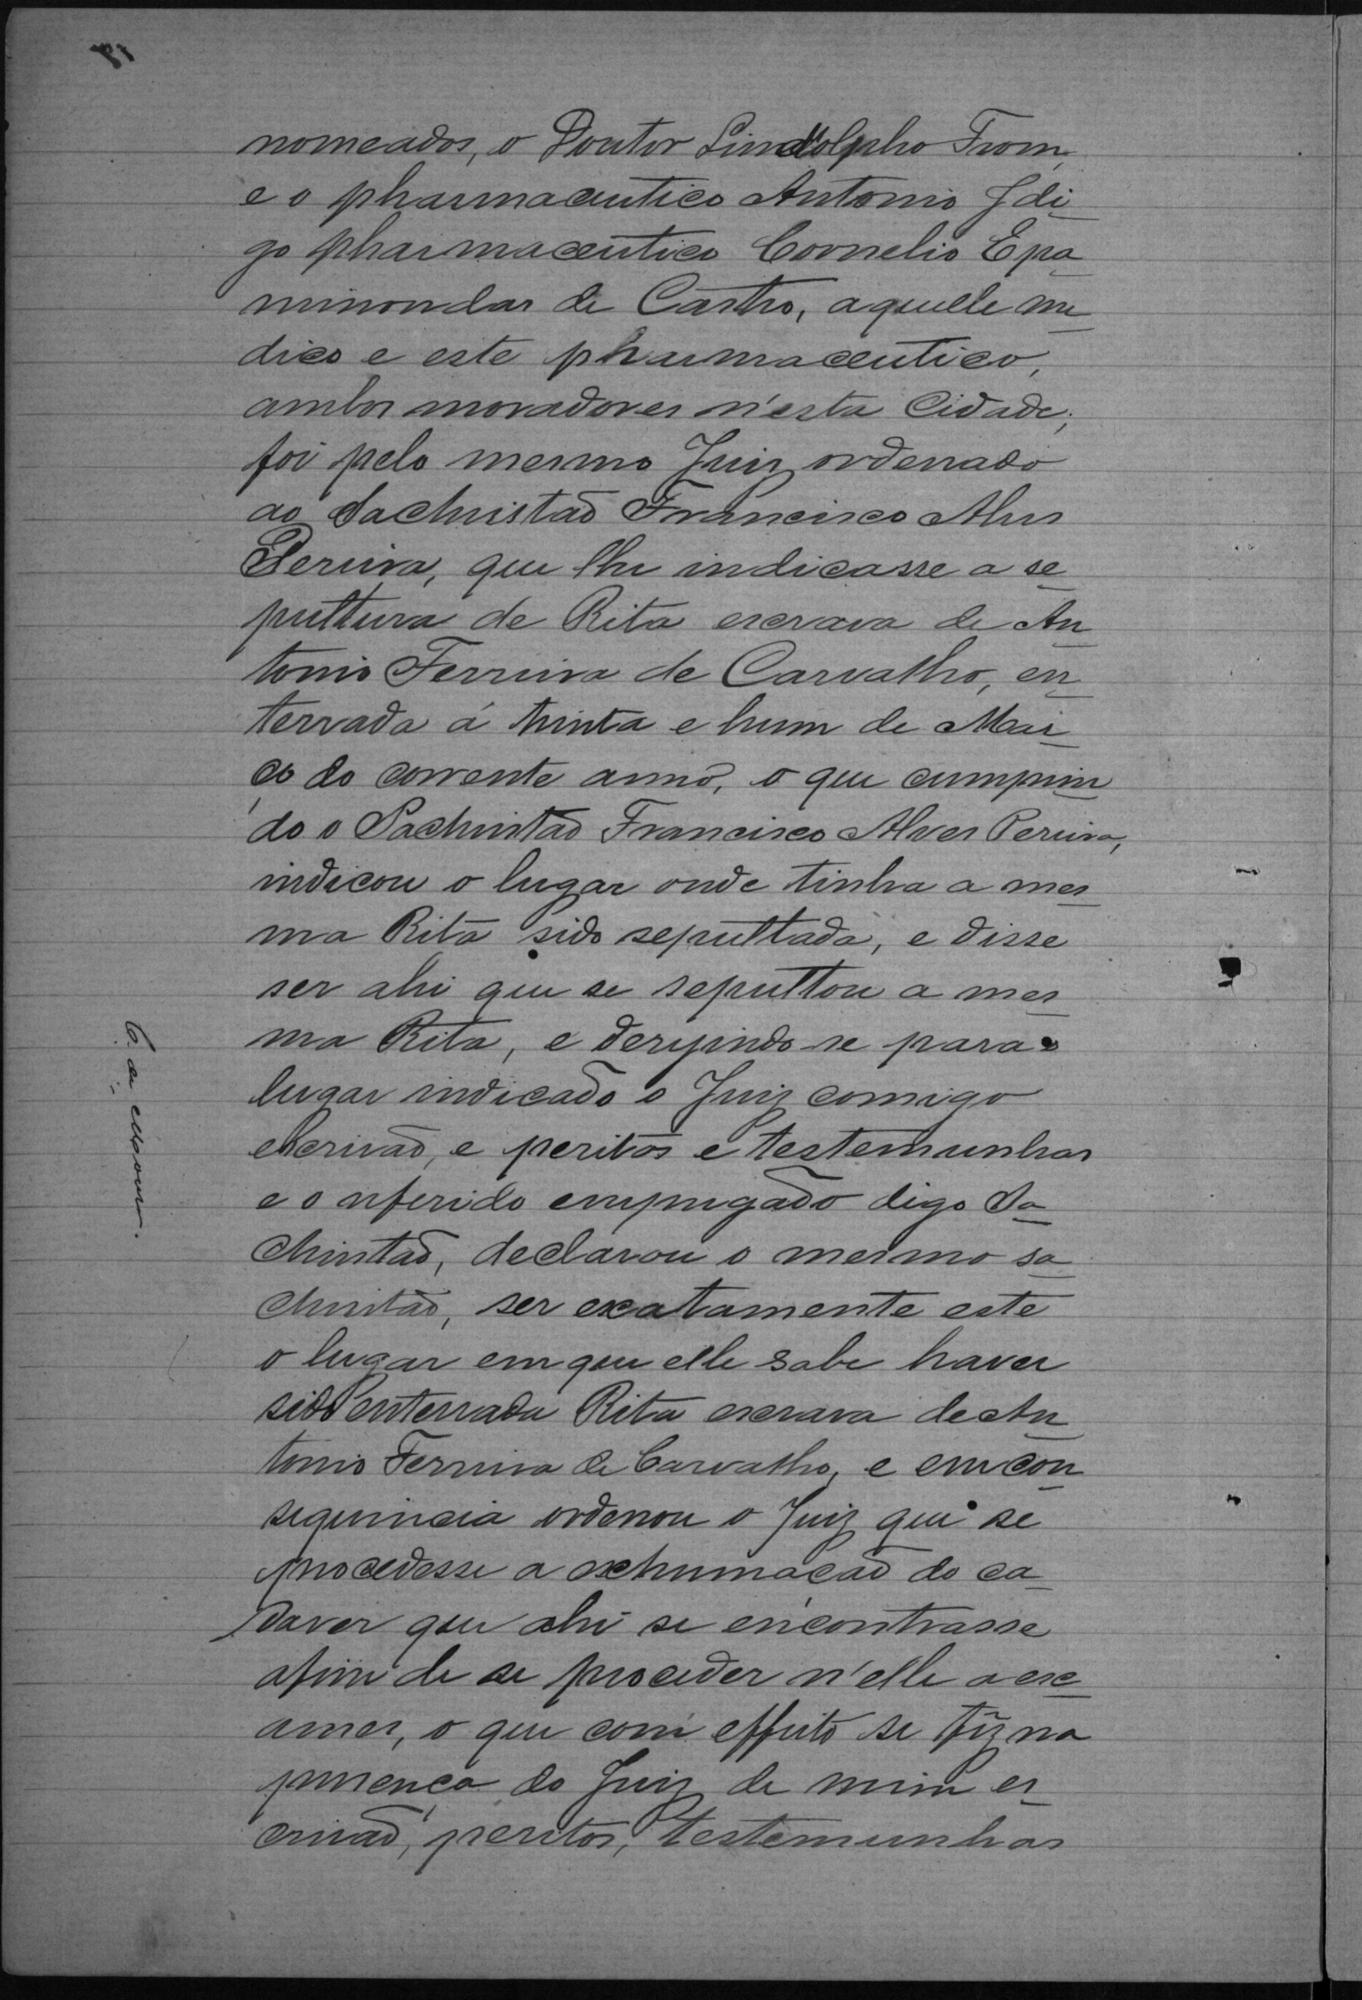 nomeados, o Doutor Lindolpho From,
e o pharmaceutico Antonio J di
go pharmaceutico Cornelio Epa
minondas de Castro, aquelle me
dico e este pharmaceutico,
ambos moradores n'esta Cidade;
foi pelo mesmo Juiz ordenado
ao Sachristão Francisco Alves
Pereira, que lhe indicasse a se
pultura de Rita escrava de An
tonio Ferreira de Carvalho, en
terrada á trinta e hum de Mar
ço do corrente anno, o que cumprin
do o Sachristão Francisco Alves Pereira,
indicou o lugar onde tinha a mes
ma Rita sido sepultada, e disse
ser ahi que se sepultou a mes
ma Rita, e derijindo-se para o
lugar indicado o Juiz comigo
escrivão, e peritos e testemunhas
e o referido empregado digo Sa
christão, declarou o mesmo sa
christão, ser exatamente este
o lugar em que elle sabe haver
sido enterrada Rita escrava de An
tonio Ferreira de Carvalho, e em con
sequencia ordenou o Juiz que se
procedesse a exhumação do ca
daver que ahi se encontrasse
afim de se proceder n'elle a ex
ames, o que com effeito se fez na
presença do Juiz de mim es
crivão, peritos, testemunhas
C. de